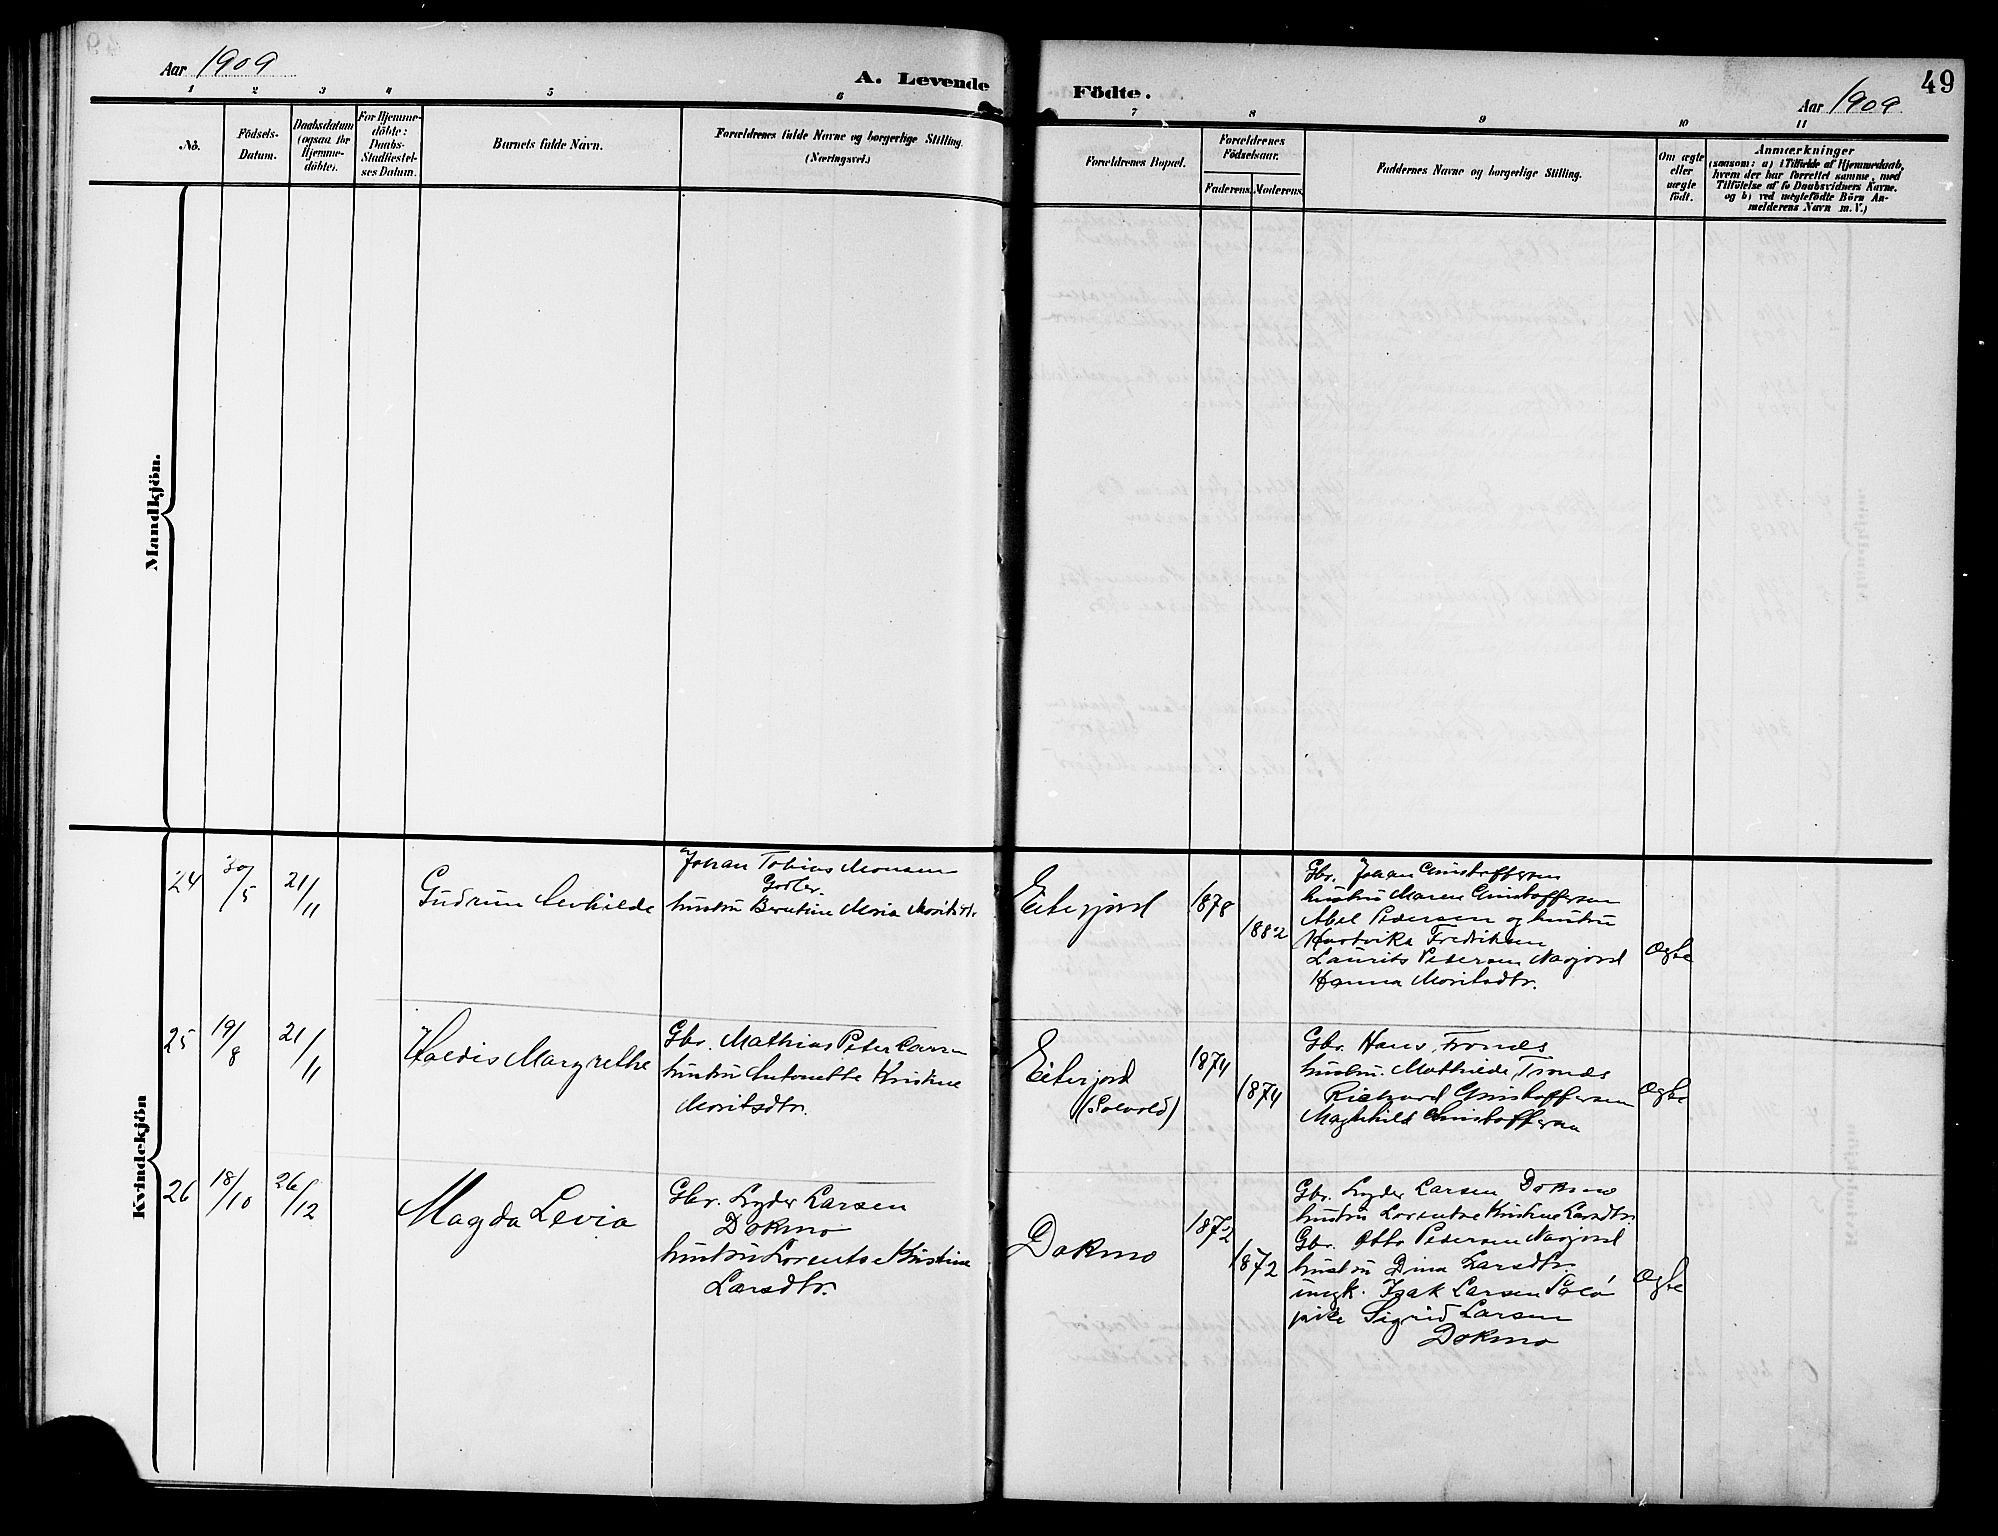 49
Aar 1909
A. Levende Födte.
Aar 1909
1 2 3 4 5 6 7 8 9 10 11
No.
Födsels-
Datum.
Daabsdatum
(ogsaa for
Hjemme-
döbte).
For Hjemme-
döbte:
Daabs-
Stadfæstel-
ses Datum.
Barnets fulde Navn.
Forældrenes fulde Navne og borgerlige Stilling.
(Næringsvei.)
Forældrenes Bopæl.
Forældrenes
Födselsaar.
Faderens. Moderens.
Faddernes Navne og borgerlige Stilling.
Om ægte
eller
uægte
födt.
Anmærkninger
(saasom: a) i Tilfælde af Hjemmedaab,
hvem der har forrettet samme, med
Tilföielse af to Daabsvidners Navne.
og b) ved uægtefödte Börn An-
melderens Navn m. V.)
Mandkjön.
Kvindekjön
24
30/5
21/11
Gudrun
Johan Tobias Monsen
hustru Berntine Maria Moritsdtr.
Eiterjord
1878
1882
Gbr. Johan Christoffersen
hustru Maren Christoffersen
Abel Pedersen og hustru
Hartvika Fredriksen
Laurits Pedersen Navjord
Hanna Moritsdtr.
Ægte
25
19/8
21/11
Valdis Margrethe
Gbr. Mathias Peter Larsen
hustru Antonette Kristine
Moritsdtr.
Eiterjord
(Solvold)
1874
1874
Gbr. Hans Tronds
hustru. Mathilde Tronds
Richard Christoffersen
Maghhild Christoffersen
Ægte
26
18/10
26/12
Magda Levia
Gbr. Lyder Larsen
Dokmo
hustru Lorentse Kristine
Larsdtr.
Dokmo
1872
1872
Gbr. Lyder Larsen Dokmo
hustru Lorentse Kristine Larsdtr.
Gbr. Otto Pedersen Navjord
hustru Dina Larsdtr.
ungk. Isak Larsen
pike Sigrid Larsen
Dokmo
Ægte